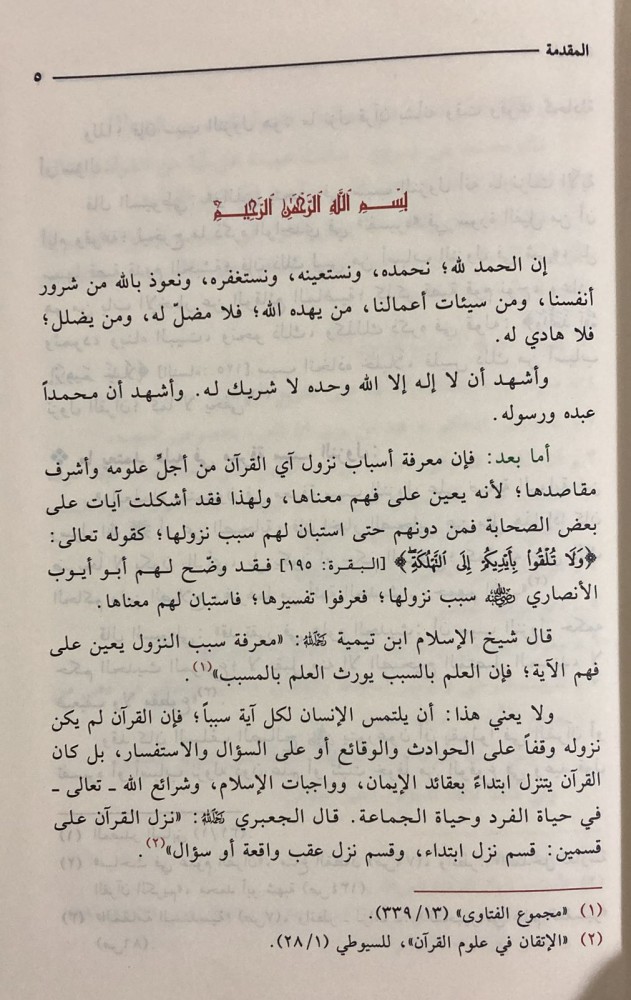 المقدمة
٥
بِسْمِ ٱللَّهِ ٱلرَّحْمَٰنِ ٱلرَّحِيمِ
إن الحمد لله؛ نحمده، ونستعينه، ونستغفره، ونعوذ بالله من شرور
أنفسنا، ومن سيئات أعمالنا، من يهده الله؛ فلا مضلّ له، ومن يضلل؛
فلا هادي له.
وأشهد أن لا إله إلا الله وحده لا شريك له. وأشهد أن محمداً
عبده ورسوله.
أما بعد: فإن معرفة أسباب نزول آي القرآن من أجلِّ علومه وأشرف
مقاصدها؛ لأنه يعين على فهم معناها، ولهذا فقد أشكلت آيات على
بعض الصحابة فمن دونهم حتى استبان لهم سبب نزولها؛ كقوله تعالى:
﴿وَلَا تُلْقُوا۟ بِأَيْدِيكُمْ إِلَى ٱلتَّهْلُكَةِ﴾ [البقرة: ١٩٥] فقد وضّح لهم أبو أيوب
الأنصاري رضي الله عنه سبب نزولها؛ فعرفوا تفسيرها؛ فاستبان لهم معناها.
قال شيخ الإسلام ابن تيمية رحمه الله: «معرفة سبب النزول يعين على
فهم الآية؛ فإن العلم بالسبب يورث العلم بالمسبب»(١).
ولا يعني هذا: أن يلتمس الإنسان لكل آية سبباً؛ فإن القرآن لم يكن
نزوله وقفاً على الحوادث والوقائع أو على السؤال والاستفسار، بل كان
القرآن يتنزل ابتداءً بعقائد الإيمان، وواجبات الإسلام، وشرائع الله ـ تعالى ـ
في حياة الفرد وحياة الجماعة. قال الجعبري رحمه الله: «نزل القرآن على
قسمين: قسم نزل ابتداء، وقسم نزل عقب واقعة أو سؤال»(٢).
(١) «مجموع الفتاوى» (١٣/ ٣٣٩).
(٢) «الإتقان في علوم القرآن»، للسيوطي (١/ ٢٨).